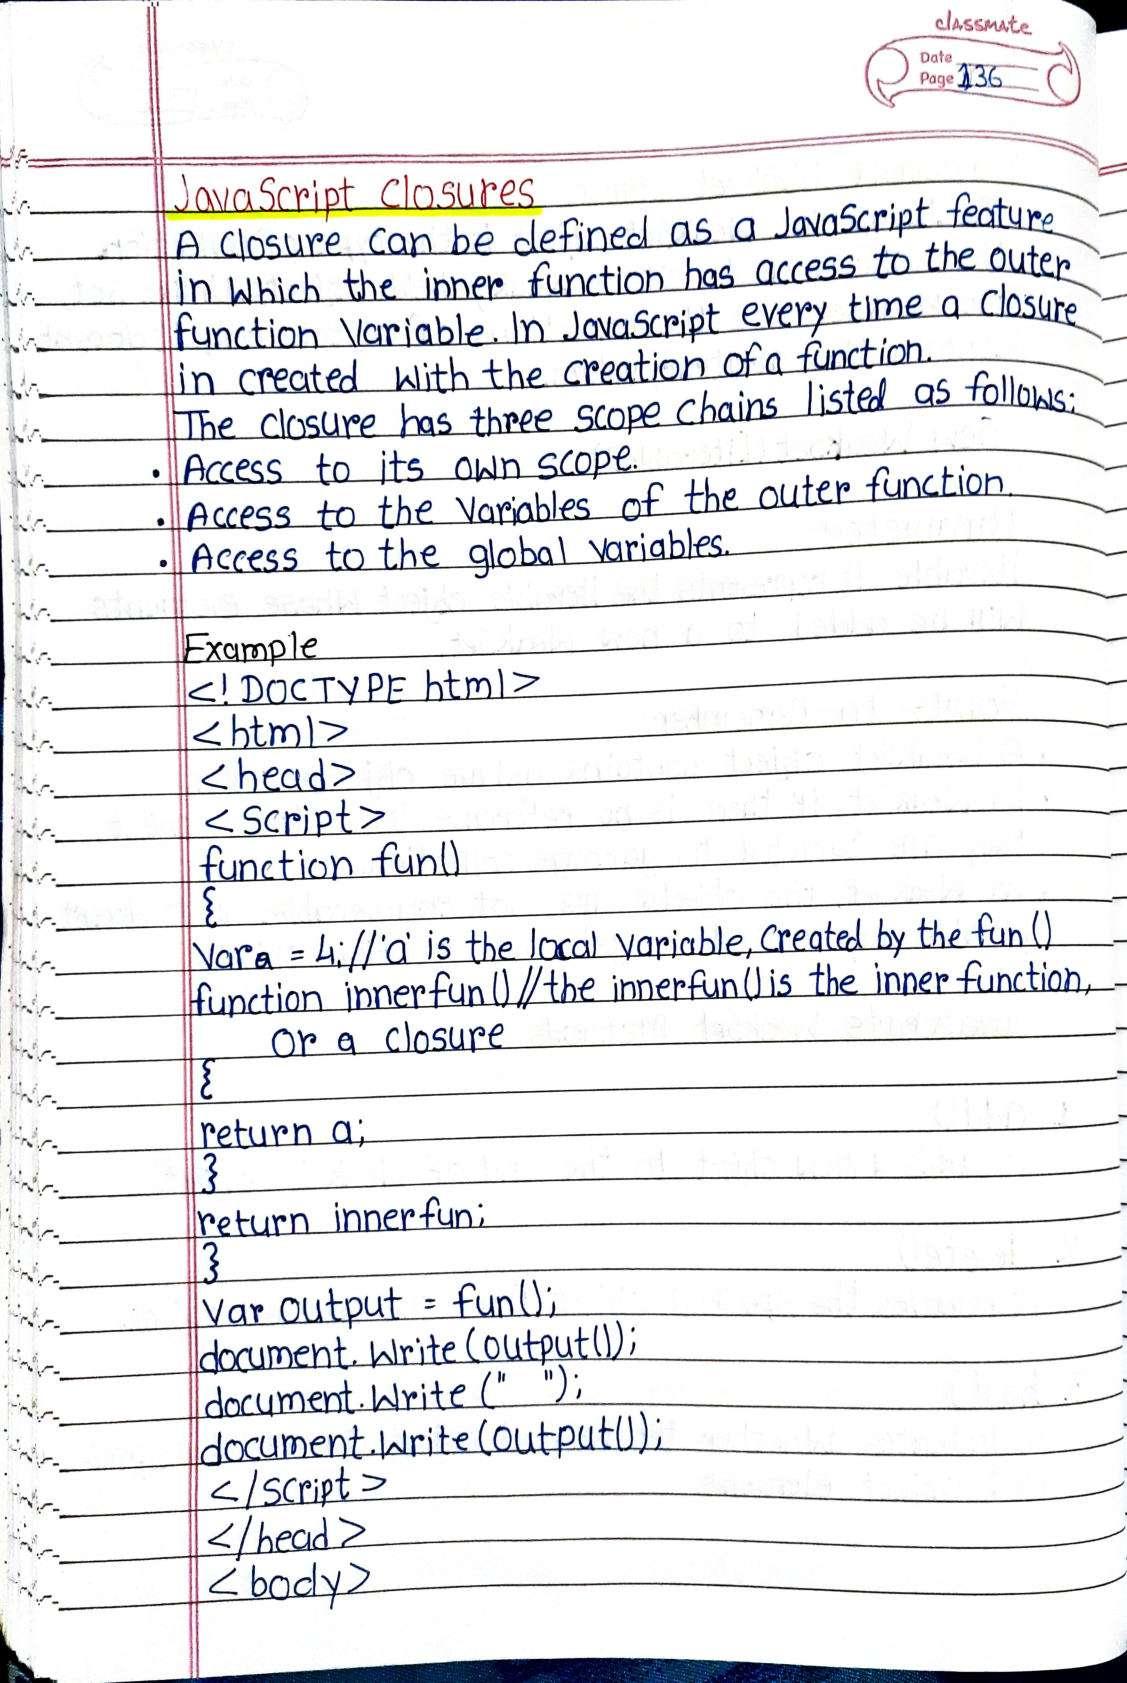 classmate
Date
Page 136
JavaScript Closures
A closure can be defined as a JavaScript feature
in which the inner function has access to the outer
function variable. In JavaScript every time a closure
in created with the creation of a function.
The closure has three scope chains listed as follows:
• Access to its own scope.
• Access to the variables of the outer function.
• Access to the global variables.
Example
<!DOCTYPE html>
<html>
<head>
<script>
function fun()
{
Var a = 4; // 'a' is the local variable, created by the fun()
function innerfun() // the innerfun() is the inner function,
or a closure
{
return a;
}
return innerfun;
}
var output = fun();
document.write(output());
document.write(" ");
document.write(output());
</script>
</head>
<body>